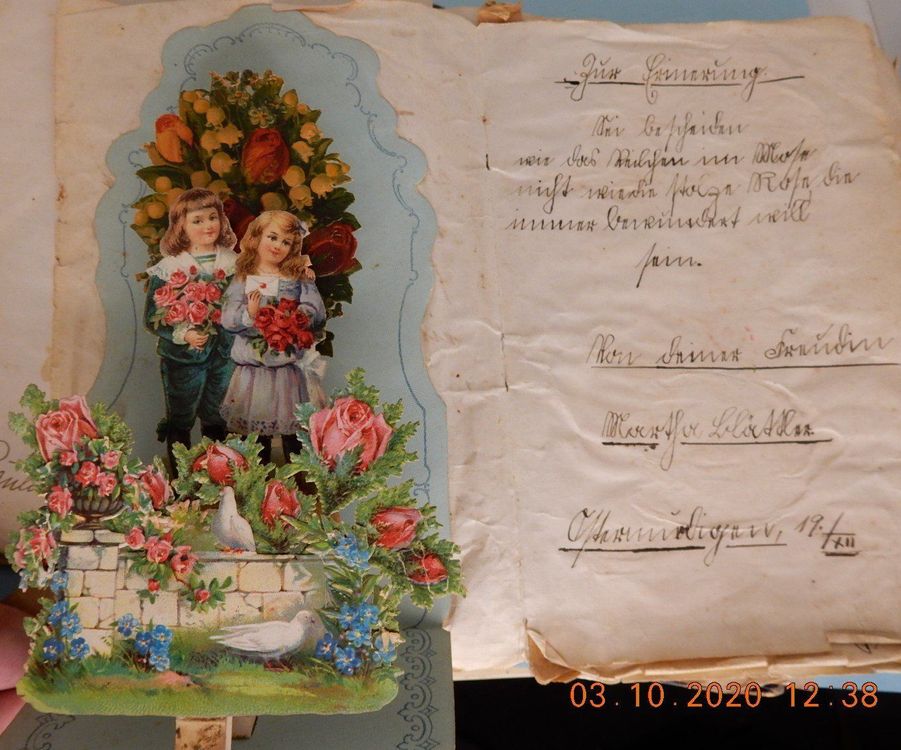 Zur Erinerung.
Sei bescheiden
wie das Veilchen im Mose
nicht wie die stolze Rose, die
immer bewundert will
sein.
Von deiner Freundin
Martha Blattler.
Ostermundigen, 19. XII
03.10.2020 12:38